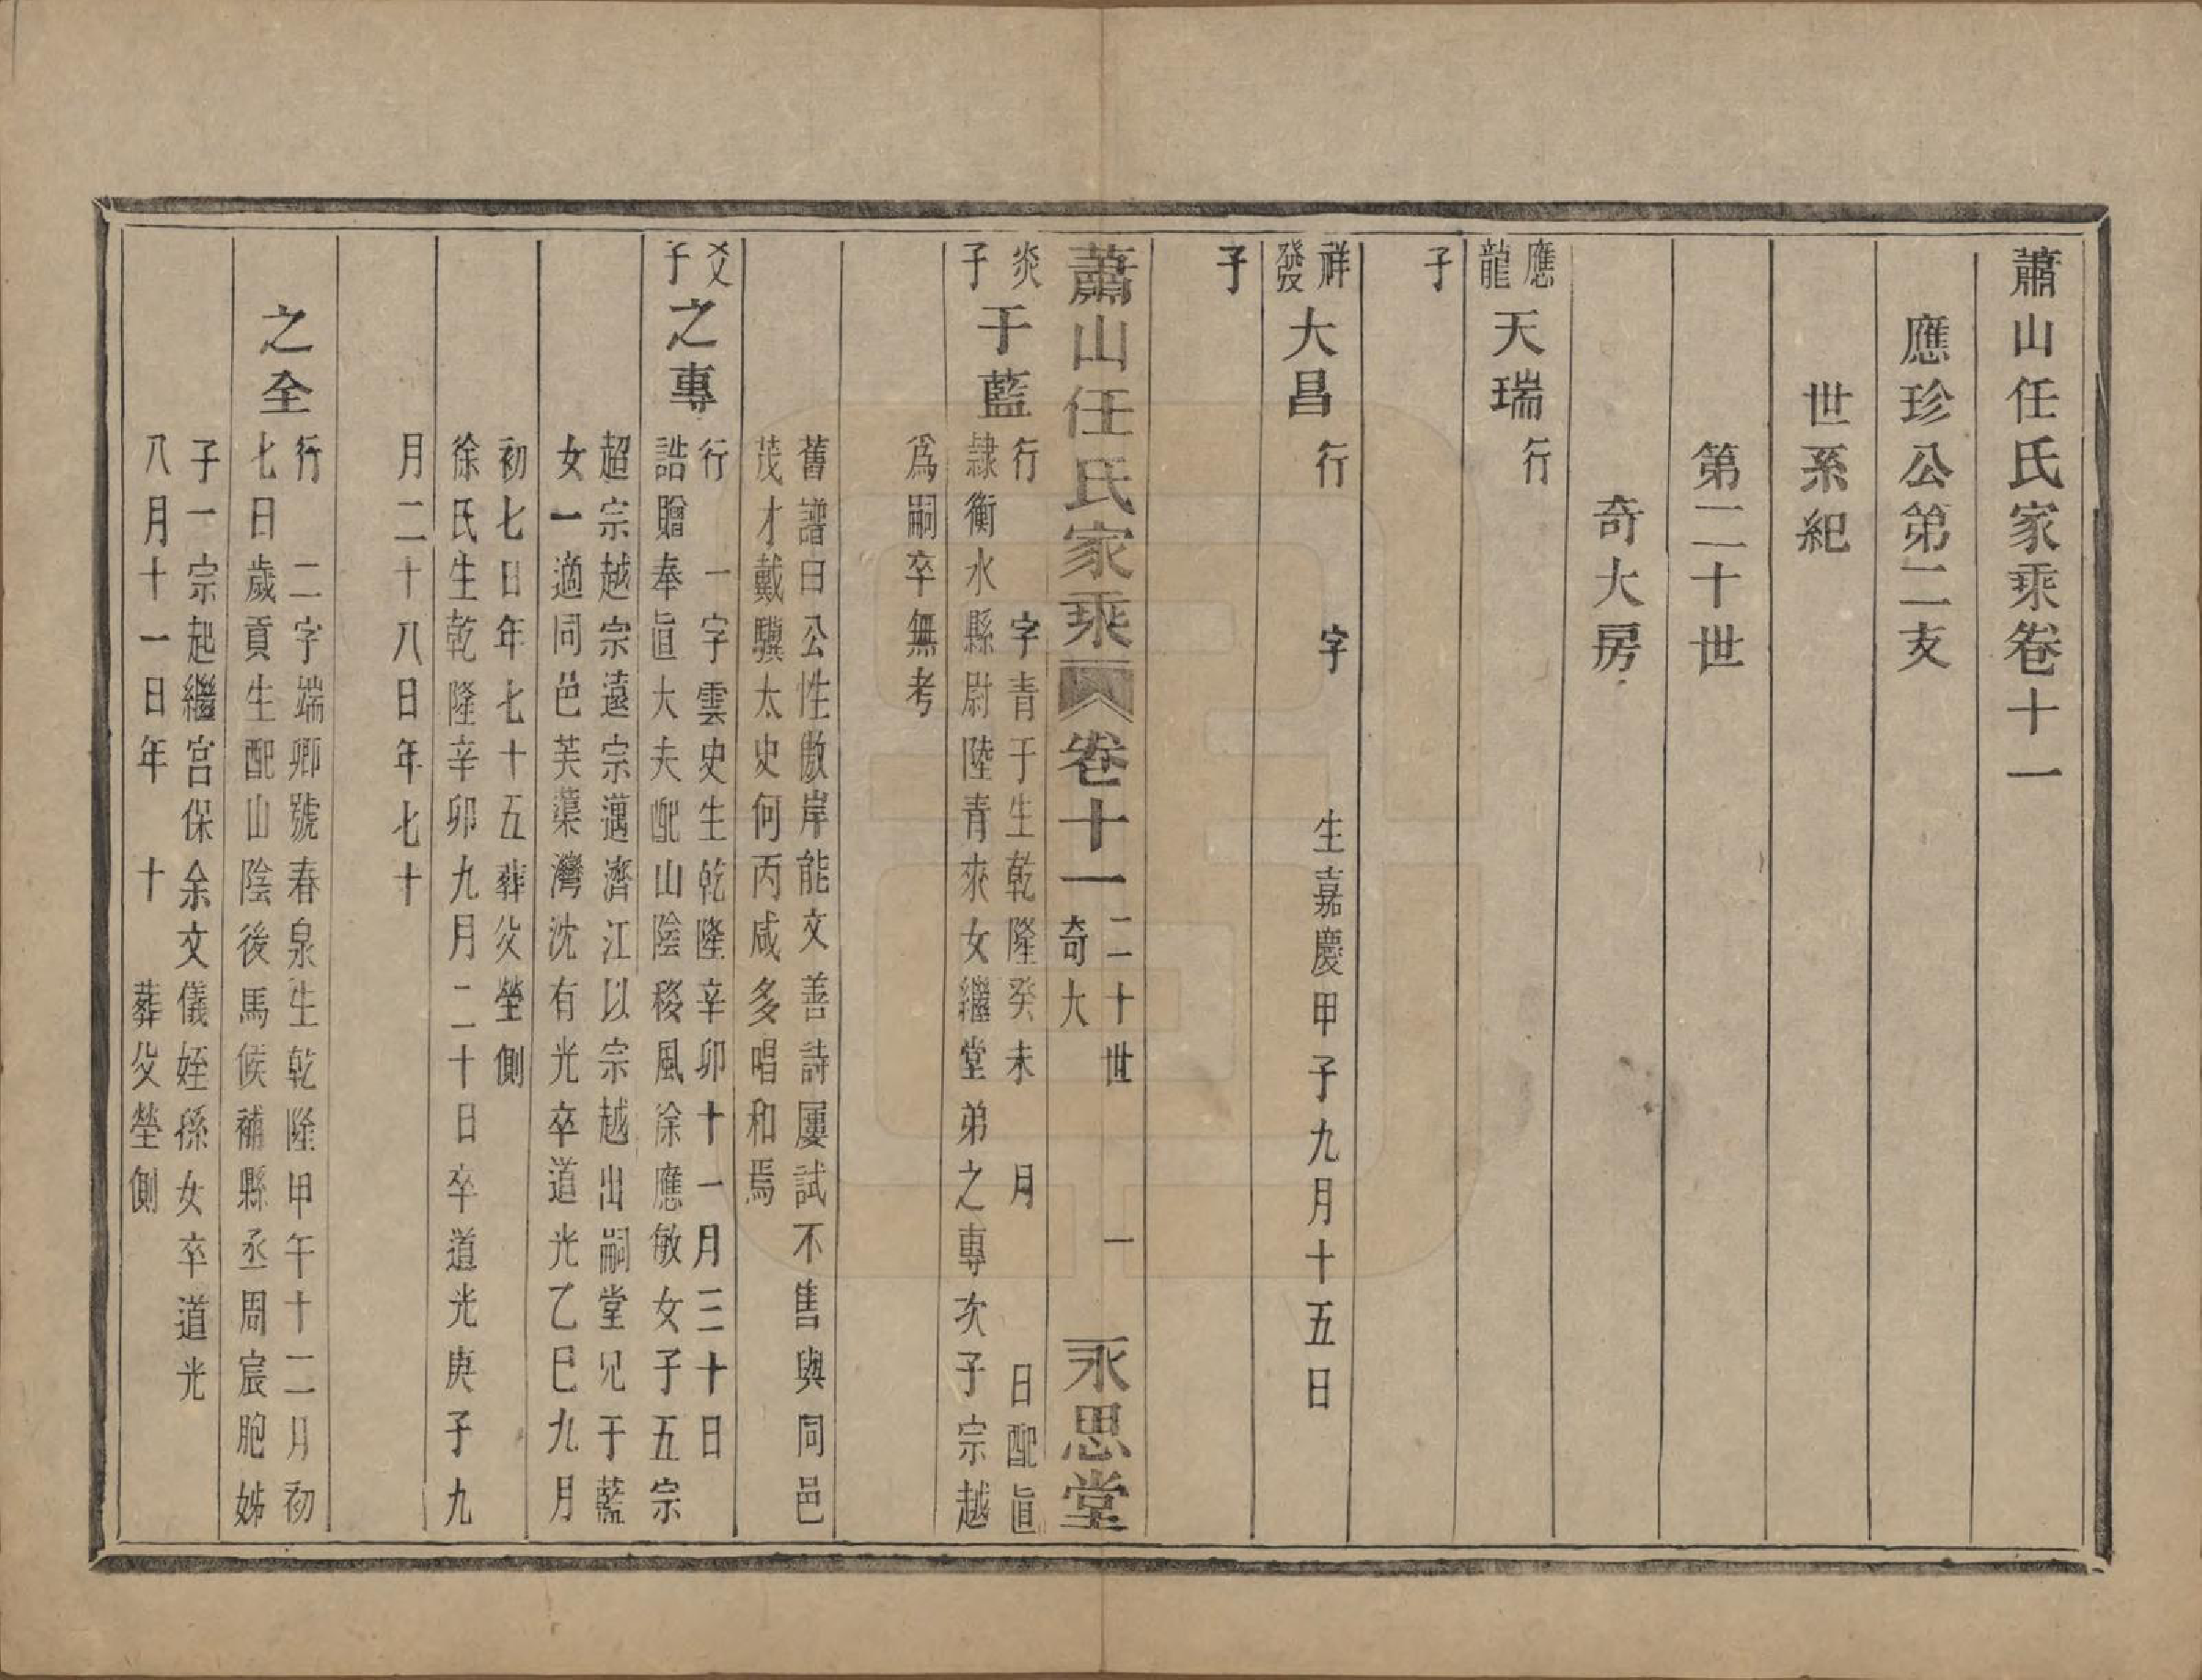 蕭山任氏家乘卷十一
應珍公第二支
世系紀
第二十世
奇大房
應龍子
天瑞
行
祥發子
大昌
行 字 生嘉慶甲子九月十五日
蕭山任氏家乘 卷十一 二十世 奇大 一 永思堂
炎子
于藍
行 字青于生乾隆癸未 月 日配直
隷衡水縣尉陸青來女繼堂弟之專次子宗越
爲嗣卒無考
舊譜曰公性傲岸能文善詩屢試不售與同邑
茂才戴驥太史何丙咸多唱和焉
爻子
之專
行一字雲史生乾隆辛卯十一月三十日
誥贈奉直大夫配山陰稜風徐應敏女子五宗
超宗越宗遠宗邁濟江以宗越出嗣堂兄于藍
女一適同邑芙蕖灣沈有光卒道光乙巳九月
初七日年七十五葬父塋側
徐氏生乾隆辛卯九月二十日卒道光庚子九
月二十八日年七十
之全
行二字端卿號春泉生乾隆甲午十二月初
七日歲貢生配山陰後馬候補縣丞周宸胞姊
子一宗起繼宮保余文儀姪孫女卒道光
八月十一日年 十 葬父塋側